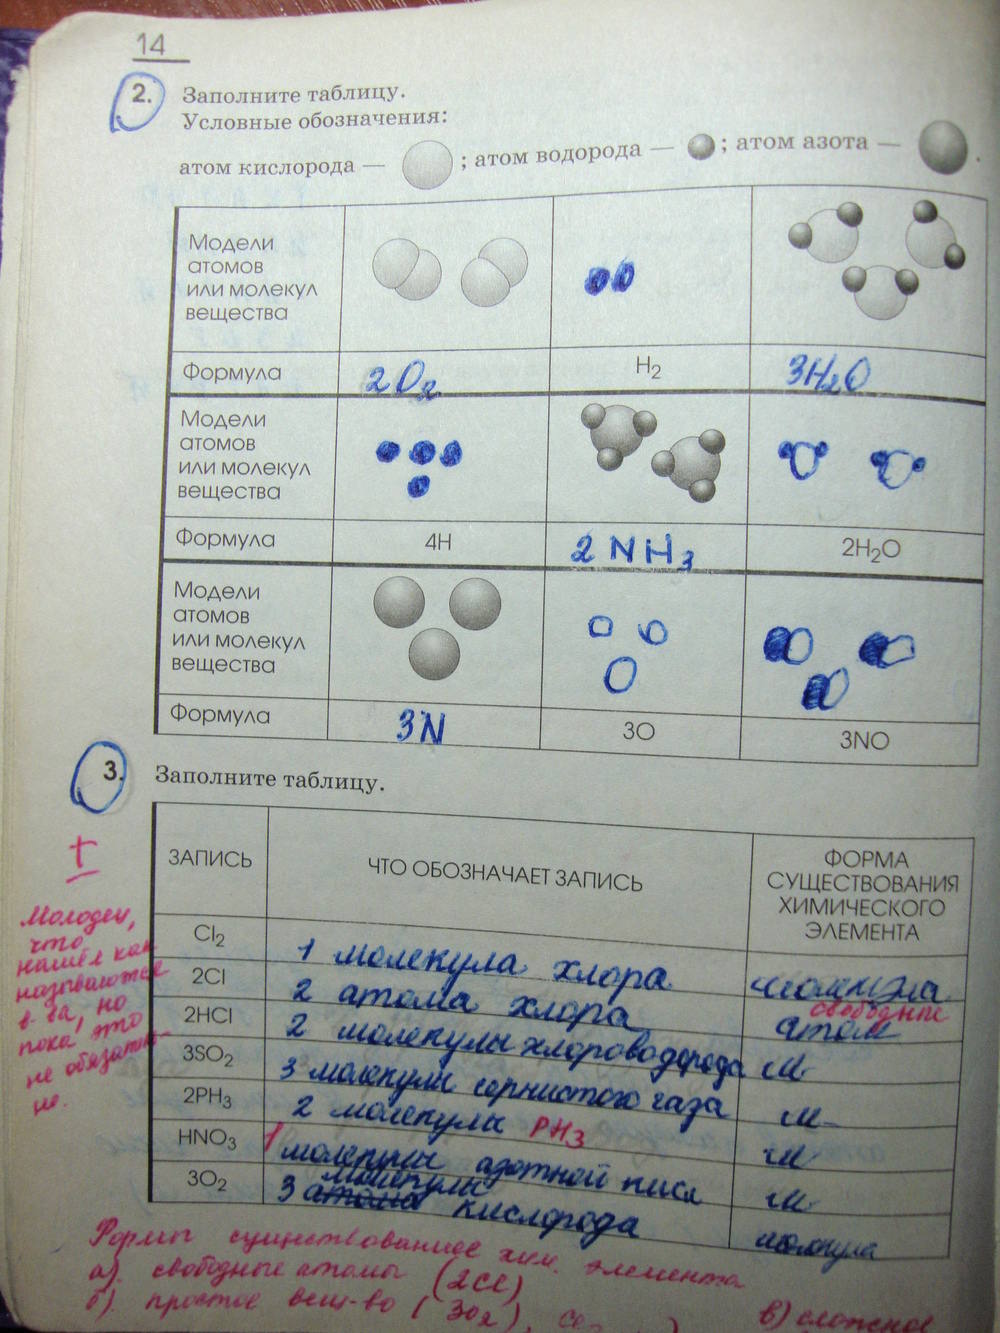 14
2. Заполните таблицу.
Условные обозначения:
атом кислорода — ; атом водорода — ; атом азота — .
Модели
атомов
или молекул
вещества
Формула
2O2
H2
3H2O
Модели
атомов
или молекул
вещества
Формула
4H
2NH3
2H2O
Модели
атомов
или молекул
вещества
Формула
3N
3O
3NO
3. Заполните таблицу.
+
Молодец,
что
нашёл как
называются
в-ва, но
пока это
не обязатель-
но.
ЗАПИСЬ
ЧТО ОБОЗНАЧАЕТ ЗАПИСЬ
ФОРМА
СУЩЕСТВОВАНИЯ
ХИМИЧЕСКОГО
ЭЛЕМЕНТА
Cl2
1 молекула хлора
молекула
2Cl
2 атома хлора
свободные
атом
2HCl
2 молекулы хлороводорода
м-
3SO2
3 молекулы сернистого газа
м-
2PH3
2 молекулы PH3
м-
HNO3
1 молекулы азотной кисл
м-
3O2
молекулы
3 атома кислорода
молекула
Формы существование хим. элемента
а). свободные атомы (2Cl)
б). простое вещ-во (3O2),
в) сложное